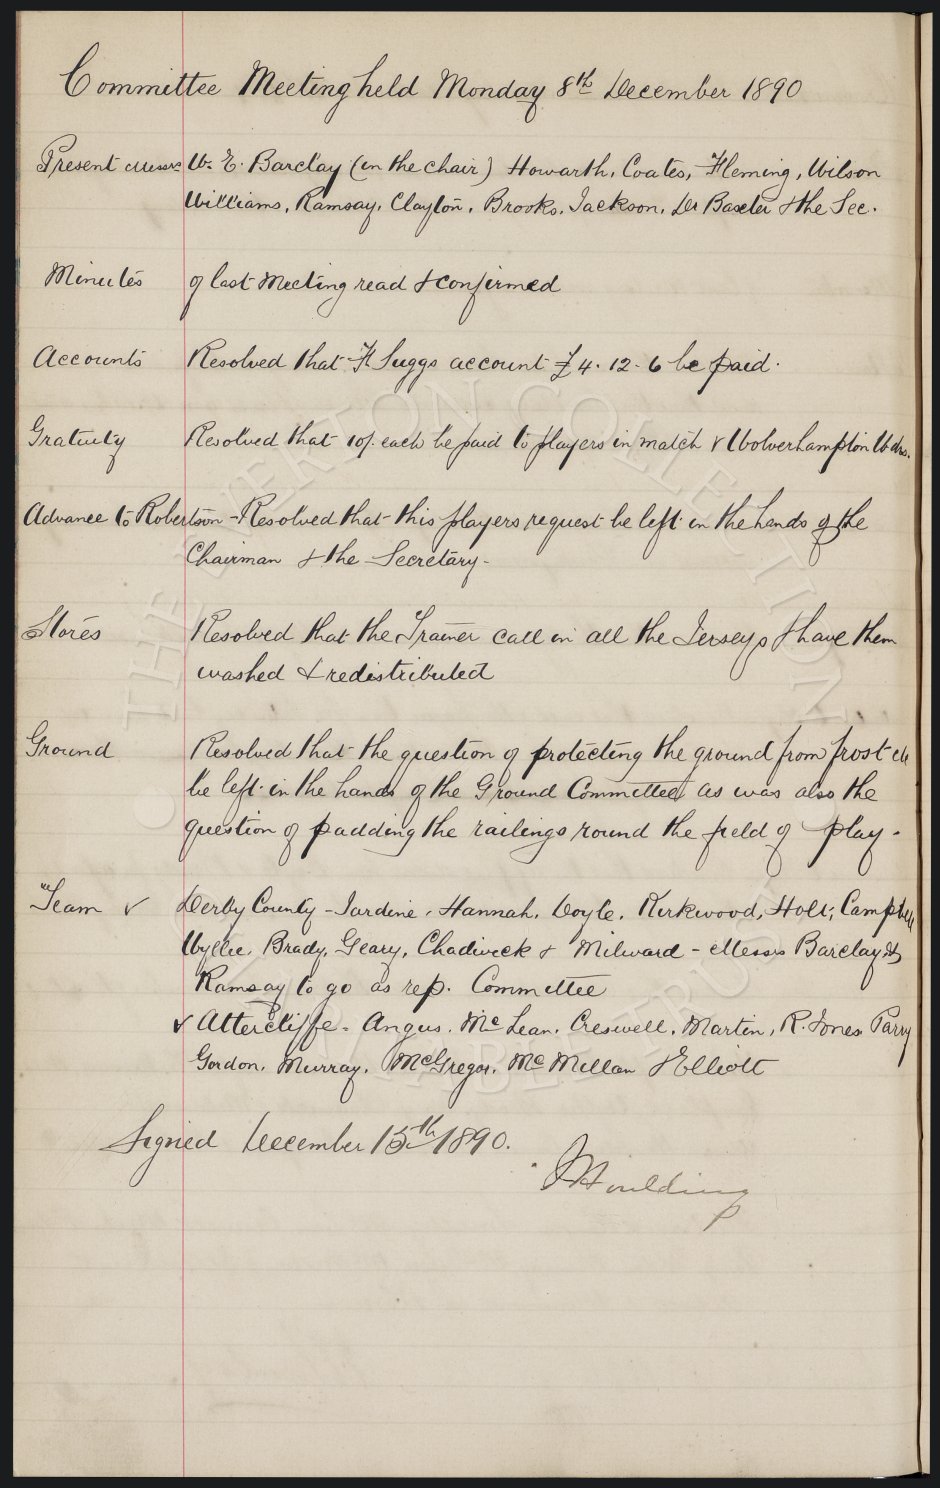 Committee Meeting held Monday 8th December 1890
Present Messrs W. E. Barclay (in the chair) Howarth, Coates, Fleming, Wilson
Williams, Ramsay, Clayton, Brooks, Jackson, Dr Baxter & the Sec.
Minutes of last Meeting read & confirmed
Accounts Resolved that F Suggs account £4. 12. 6 be paid.
Gratuity Resolved that 10/- each be paid to players in match v Wolverhampton Wdrs.
Advance to Robertson - Resolved that this players request be left in the hands of the
Chairman & the Secretary-
Stores Resolved that the Trainer call in all the Jerseys & have them
washed & redistributed
Ground Resolved that the question of protecting the ground from frost etc
be left in the hands of the Ground Committee as was also the
question of padding the railings round the field of play.
Team v Derby County - Jardine, Hannah, Doyle, Kirkwood, Holt, Campbell
Wyllie, Brady, Geary, Chadwick & Milward - Messrs Barclay &
Ramsay to go as rep. Committee
v Attercliffe - Angus, McLean, Creswell, Martin, R. Jones Parry
Gordon, Murray, McGregor, McMillan & Elliott
Signed December 15th 1890.
J Houlding
THE EVERTON COLLECTION
CHARITABLE TRUST